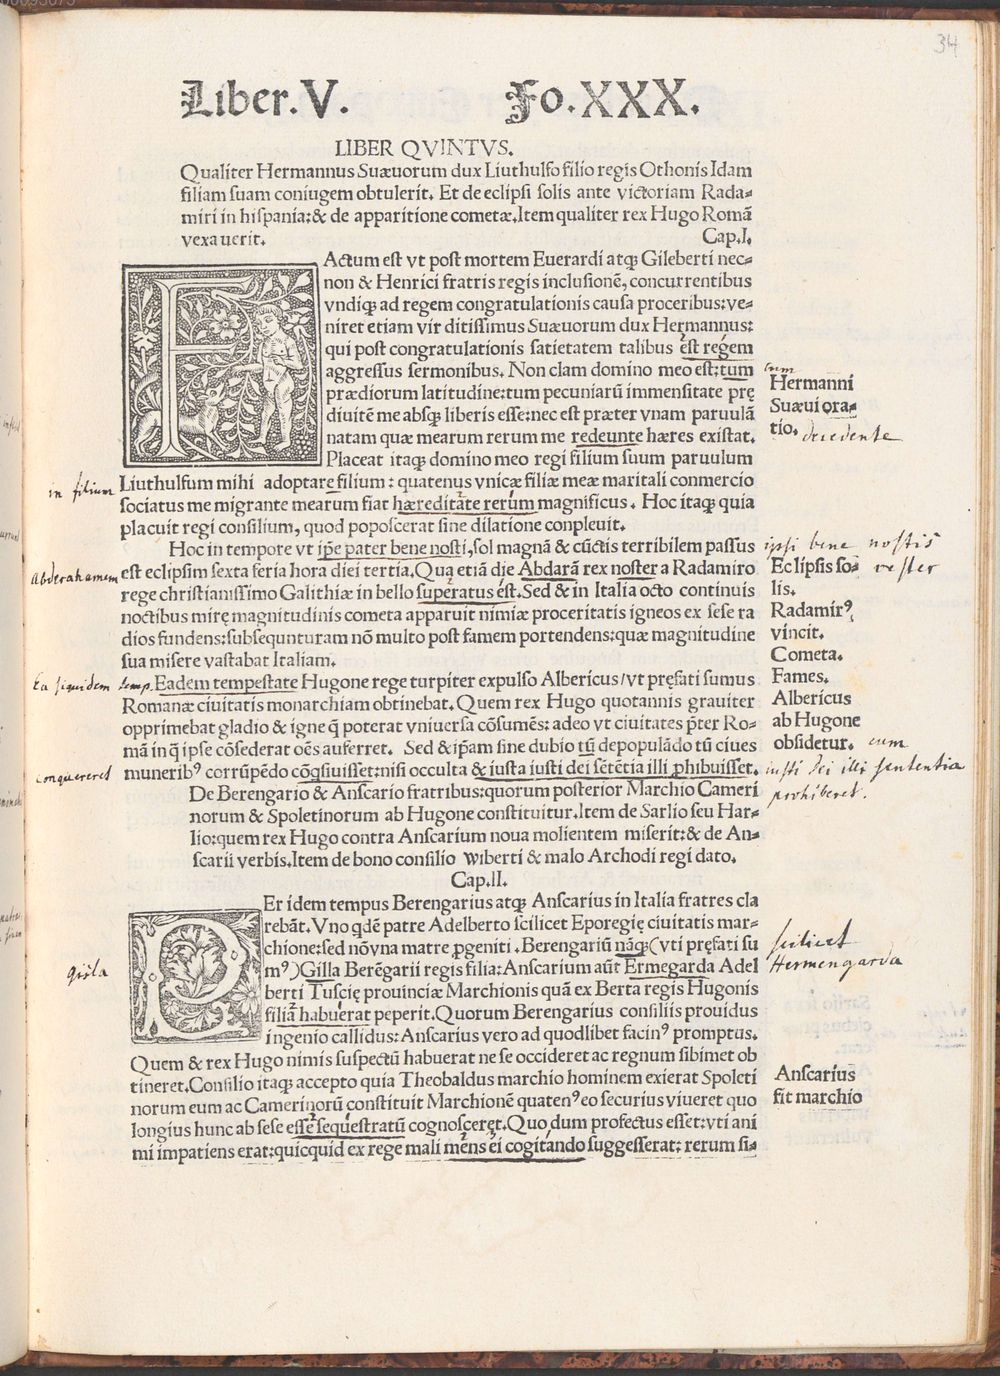 34
Liber.V. Fo.XXX.
LIBER QVINTVS.
Qualiter Hermannus Suæuorum dux Liuthulfo filio regis Othonis Idam
filiam suam coniugem obtulerit. Et de eclipsi solis ante victoriam Rada-
miri in hispania:& de apparitione cometæ.Item qualiter rex Hugo Romā
vexauerit. Cap.I.
FActum est vt post mortem Euerardi atq; Gileberti nec-
non & Henrici fratris regis inclusionē, concurrentibus
vndiq; ad regem congratulationis causa proceribus:ve-
niret etiam vir ditissimus Suæuorum dux Hermannus:
qui post congratulationis satietatem talibus est regem
aggressus sermonibus. Non clam domino meo est:tum
prædiorum latitudine:tum pecuniarū immensitate prę
diuitē me absq; liberis esse:nec est præter vnam paruulā
natam quæ mearum rerum me redeunte hæres existat.
Placeat itaq; domino meo regi filium suum paruulum
Liuthulfum mihi adoptare filium: quatenus vnicæ filiæ meæ maritali conmercio
sociatus me migrante mearum fiat hæreditate rerum magnificus. Hoc itaq; quia
placuit regi consilium, quod poposcerat sine dilatione conpleuit.
Hoc in tempore vt ip̄e pater bene nosti,sol magnā & cūctis terribilem passus
est eclipsim sexta feria hora diei tertia.Qua etiā die Abdarā rex noster a Radamiro
rege christianissimo Galithiæ in bello superatus est.Sed & in Italia octo continuis
noctibus mirę magnitudinis cometa apparuit nimiæ proceritatis igneos ex sese ra
dios fundens:subsequnturam nō multo post famem portendens:quæ magnitudine
sua misere vastabat Italiam.
Eadem tempestate Hugone rege turpiter expulso Albericus/vt pręfati sumus
Romanæ ciuitatis monarchiam obtinebat.Quem rex Hugo quotannis grauiter
opprimebat gladio & igne q̄ poterat vniuersa cōsumēs: adeo vt ciuitates p̄ter Ro-
mā in q̄ ipse cōsederat oēs auferret. Sed & ip̄am sine dubio tū depopulādo tū ciues
munerib⁹ corrūpēdo cōq̄siuisset:nisi occulta & iusta iusti dei sētētia illi ꝓhibuisset.
De Berengario & Anscario fratribus:quorum posterior Marchio Cameri
norum & Spoletinorum ab Hugone constituitur.Item de Sarlio seu Har-
lio:quem rex Hugo contra Anscarium noua molientem miserit:& de An-
scarii verbis.Item de bono consilio Wiberti & malo Archodi regi dato.
Cap.II.
PEr idem tempus Berengarius atq; Anscarius in Italia fratres cla
rebāt.Vno qdē patre Adelberto scilicet Eporegię ciuitatis mar-
chione:sed nō vna matre ꝓgeniti. Berengariū nāq;(vti pręfati su
m⁹)Gilla Berēgarii regis filia:Anscarium aūt Ermegarda Adel
berti Tuscię prouinciæ Marchionis quā ex Berta regis Hugonis
filiā habuerat peperit.Quorum Berengarius consiliis prouidus
ingenio callidus:Anscarius vero ad quodlibet facin⁹ promptus.
Quem & rex Hugo nimis suspectū habuerat ne se occideret ac regnum sibimet ob
tineret.Consilio itaq; accepto quia Theobaldus marchio hominem exierat Spoleti
norum eum ac Camerinorū constituit Marchionē quaten⁹ eo securius viueret quo
longius hunc ab sese esse sequestratū cognosceret.Quo dum profectus esset:vti ani
mi impatiens erat:quicquid ex rege mali mens ei cogitando suggesserat: rerum si-
cum
Hermanni
Suæui ora-
tio.
decedente
in filium
ipsi bene nostis
Eclipsis so-
lis.
vester
Abderahamem
Radamir⁹
vincit.
Cometa.
Fames.
Albericus
ab Hugone
obsidetur.
Ea siquidem temp.
cum
iusti Dei illi sententia
prohiberet.
conquereret
scilicet
Hermengarda
Gisla
Anscarius
fit marchio